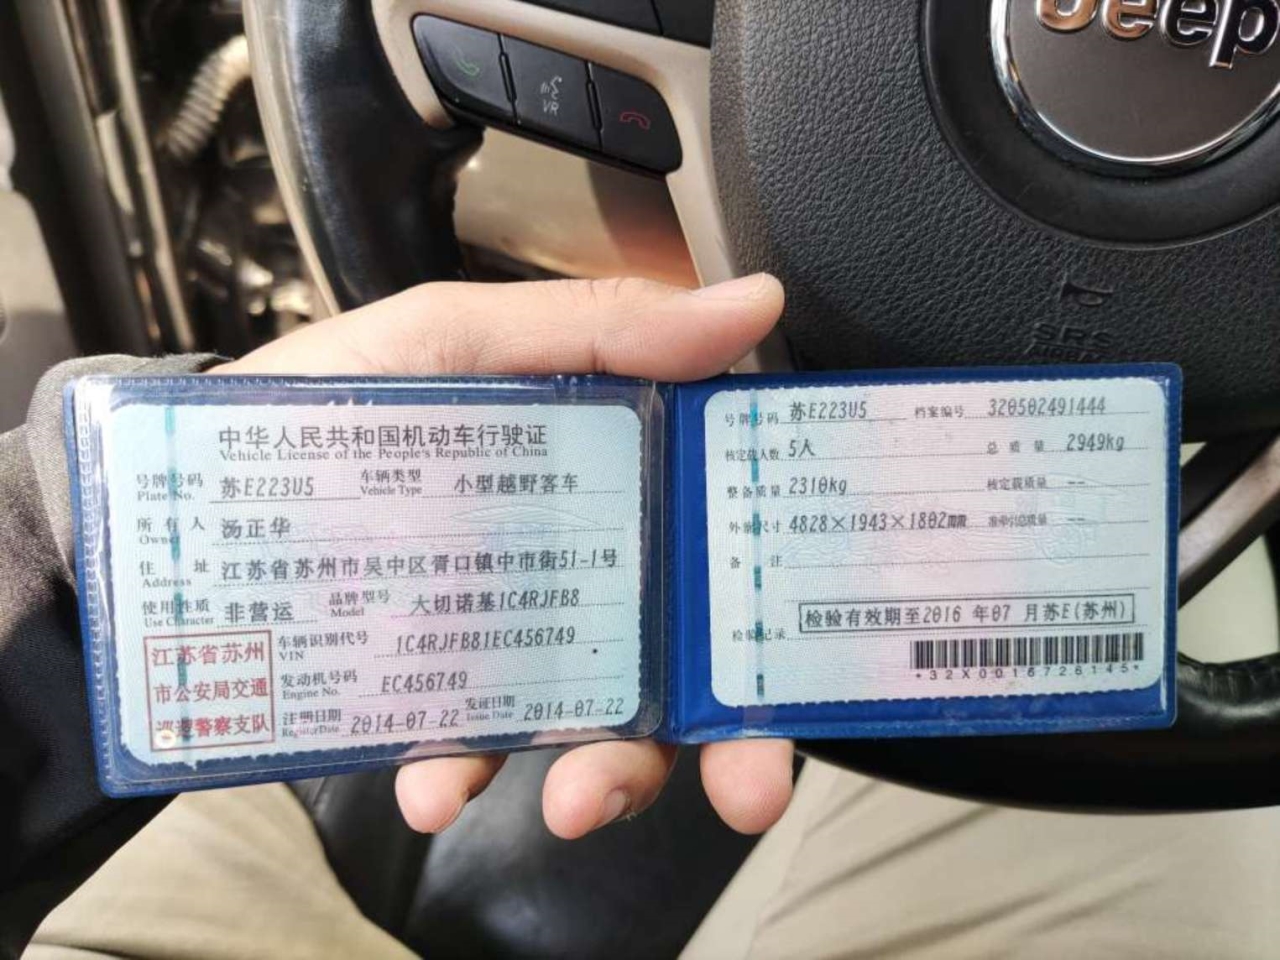 Jeep
VR
SRS
AIRBAG
中华人民共和国机动车行驶证
Vehicle License of the People's Republic of China
号牌号码 苏E223U5 车辆类型 小型越野客车
Plate No. Vehicle Type
所有人 汤正华
Owner
住址 江苏省苏州市吴中区胥口镇中市街51-1号
Address
使用性质 非营运 品牌型号 大切诺基1C4RJFB8
Use Character Model
江苏省苏州
市公安局交通
巡逻警察支队
车辆识别代号 1C4RJFB81EC456749
VIN
发动机号码 EC456749
Engine No.
注册日期 2014-07-22 发证日期 2014-07-22
Register Date Issue Date
号牌号码 苏E223U5 档案编号 320502491444
核定载人数 5人 总质量 2949kg
整备质量 2310kg 核定载质量 --
外廓尺寸 4828×1943×1802mm 准牵引总质量 --
备注
检验有效期至2016年07月苏E(苏州)
检验记录
*32X0016726145*